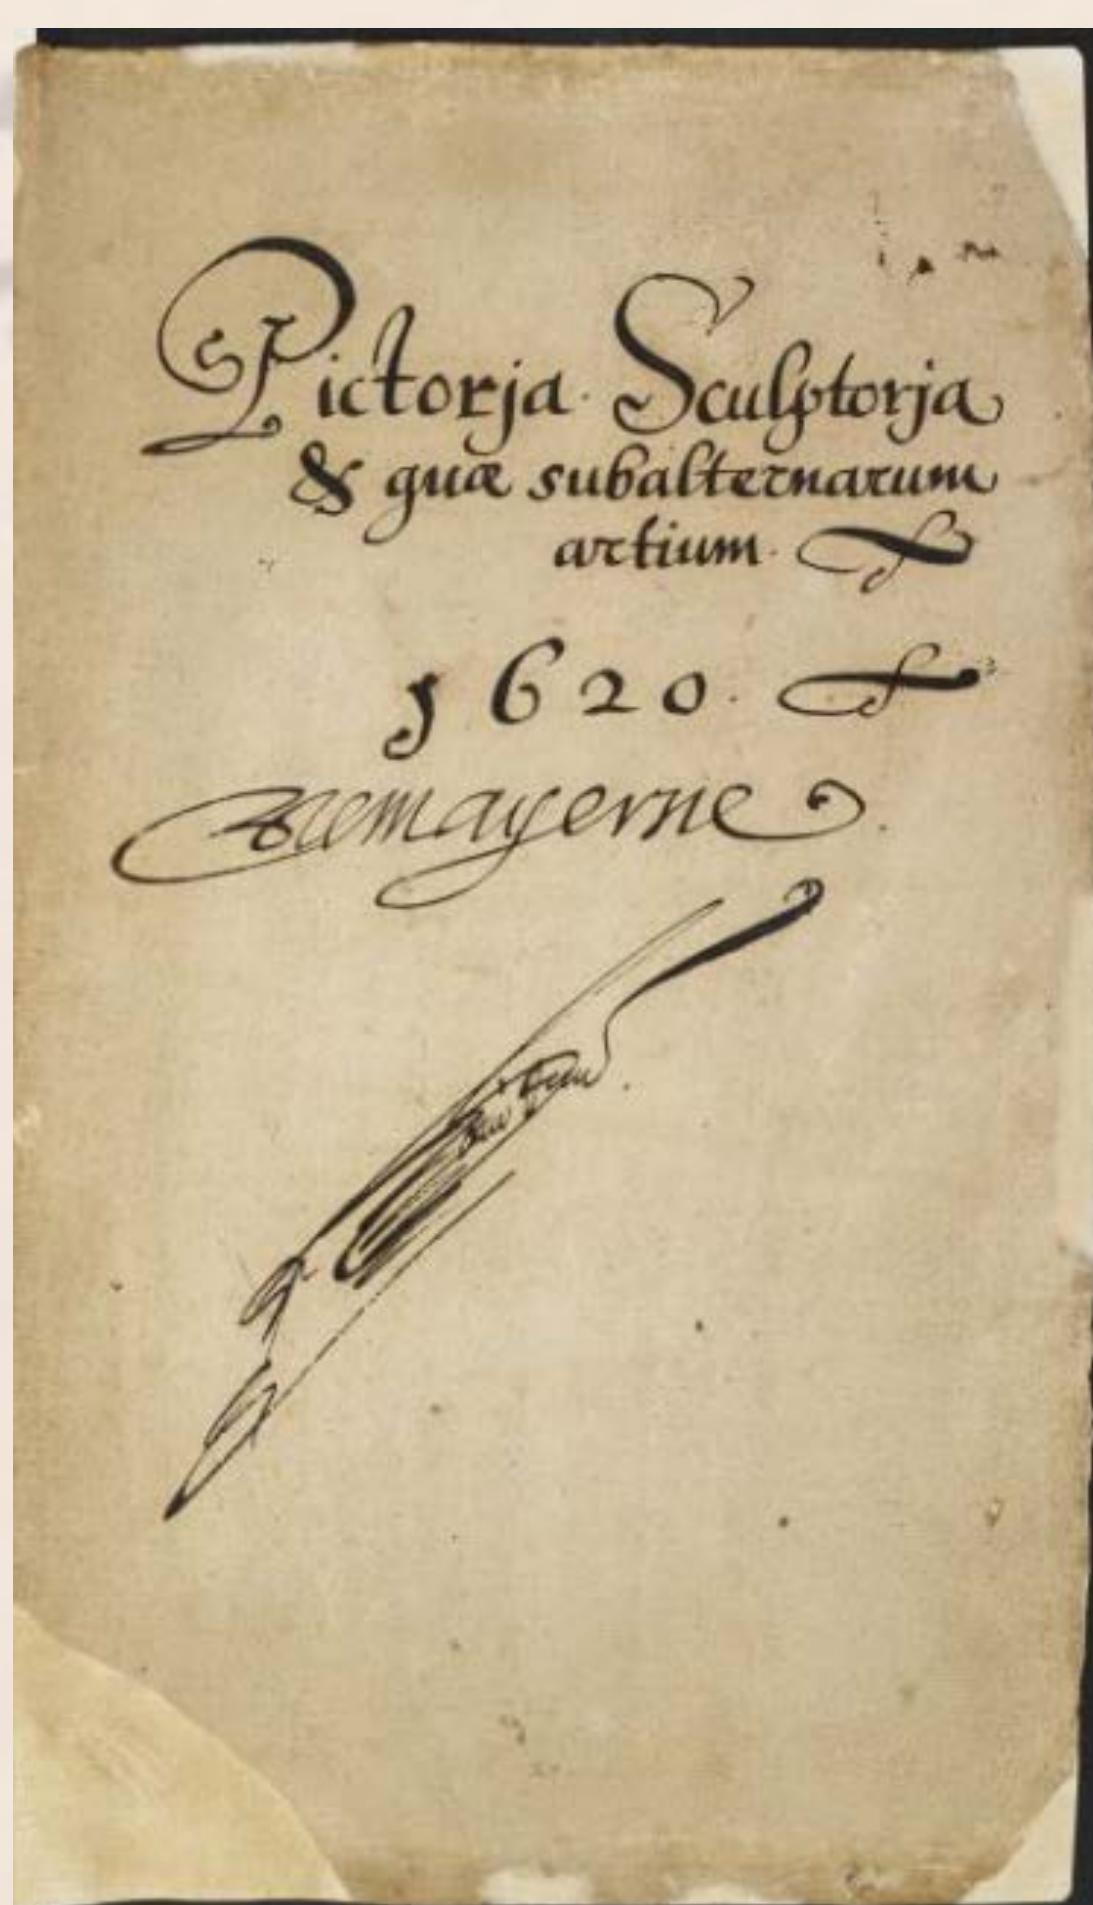 Pictorja Sculptorja
& quæ subalternarum
artium.
1620.
TDemayerne